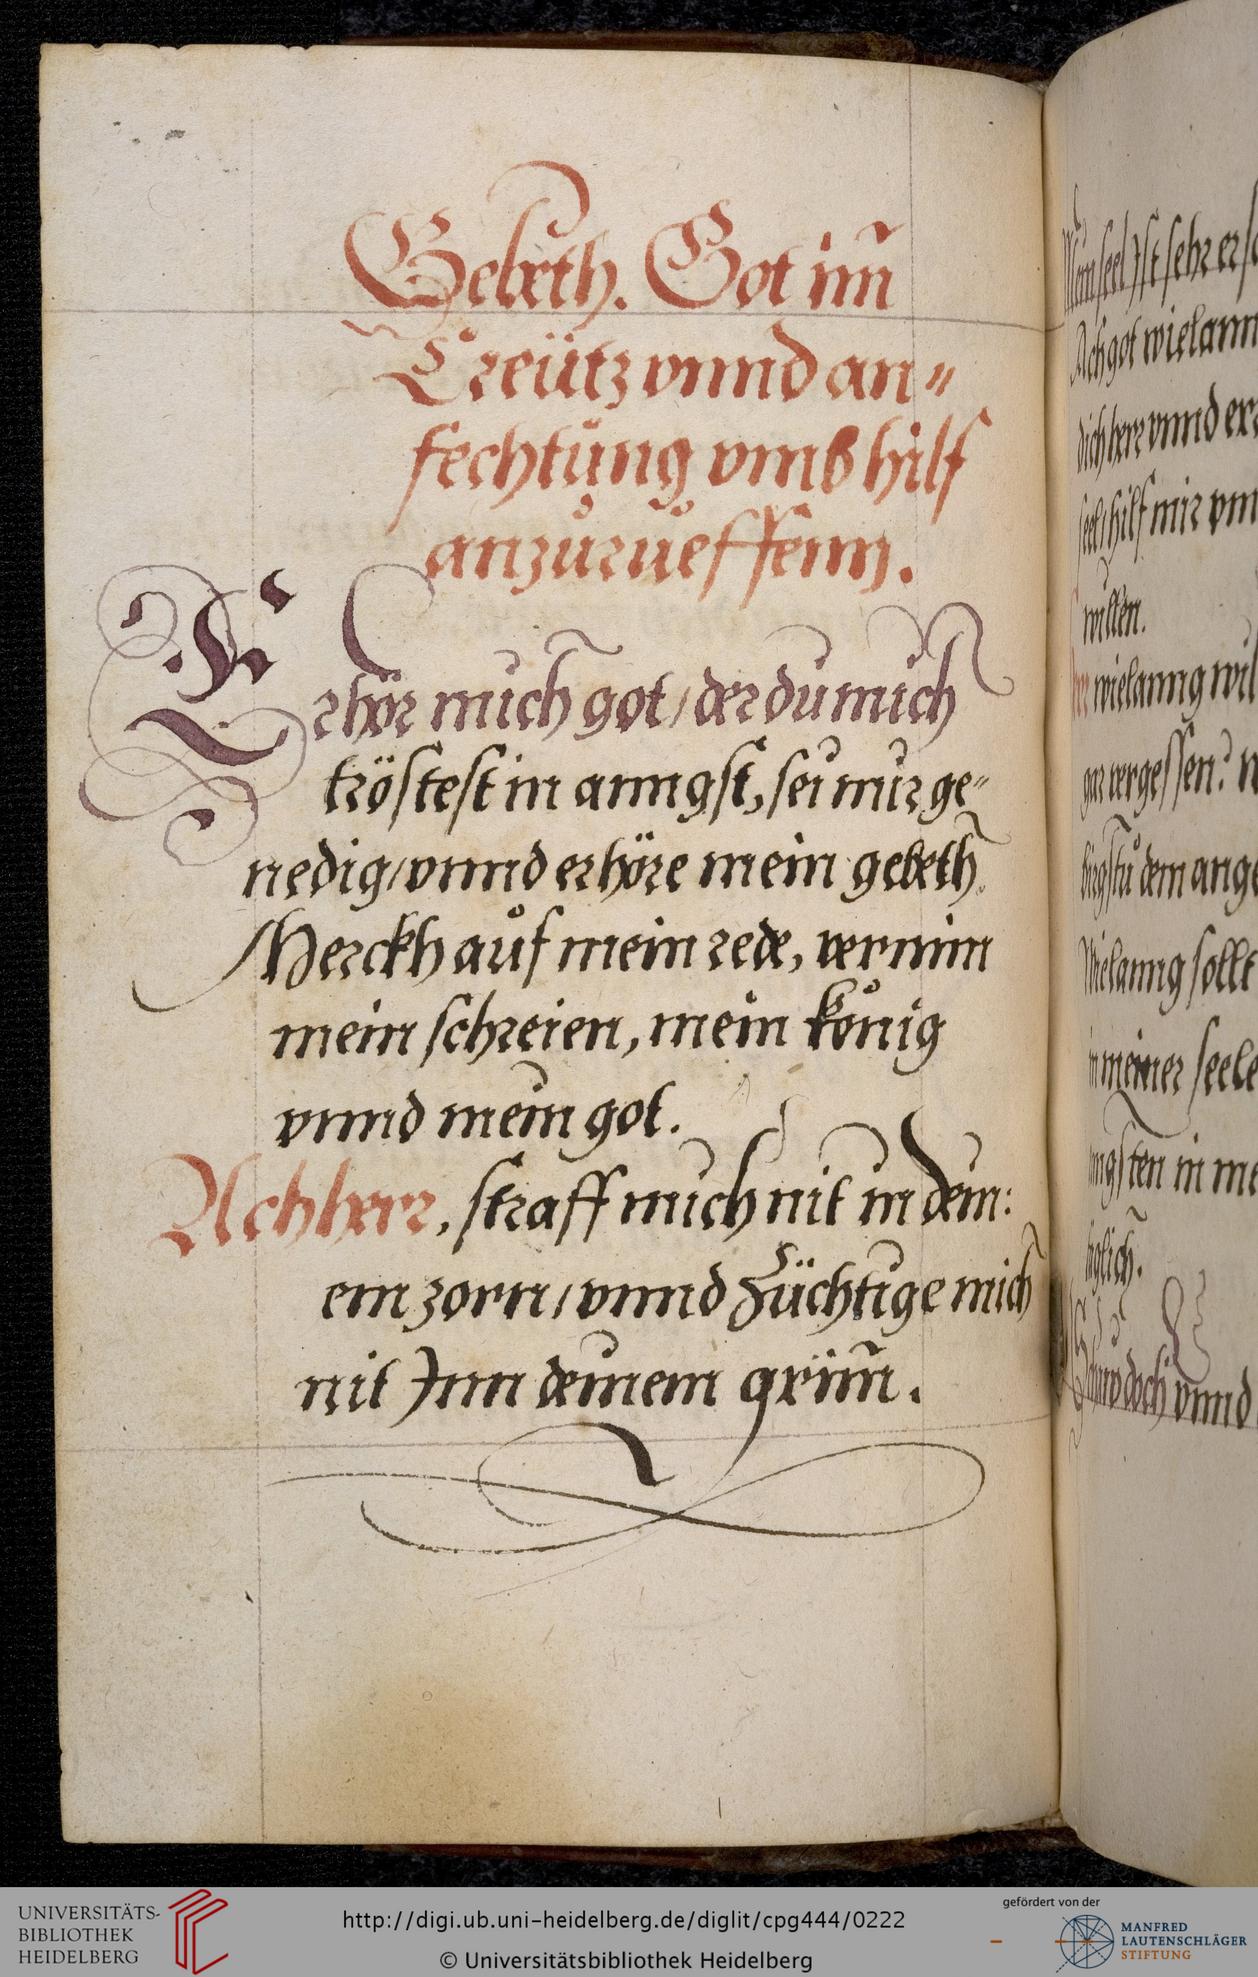 Gebeth. Got im̃
Creütz vnnd an=
fechtŭng vmb hilf
anzŭrŭeffenn.
Erhör mich got / der du mich
tröstest in anngst, sei mir ge=
nedig / vnnd erhöre mein gebeth.
Merckh aŭf mein rede, vernim
mein schreien, mein König
vnnd mein got.
Ach herr, straff mich nit in dein:
em zorn / vnnd Züchtige mich
nit Inn deinem grim̃.
Mein seel Ist sehr
Ach got wielann
dich herr vnnd
seel / hilf mir
willen.
wielanng wil
gar vergessen?
dein ange
Wielanng sollt
in meiner seele
ngsten in me
doch vnnd
UNIVERSITÄTS-
BIBLIOTHEK
HEIDELBERG
http://digi.ub.uni-heidelberg.de/diglit/cpg444/0222
© Universitätsbibliothek Heidelberg
gefördert von der
MANFRED
LAUTENSCHLÄGER
STIFTUNG